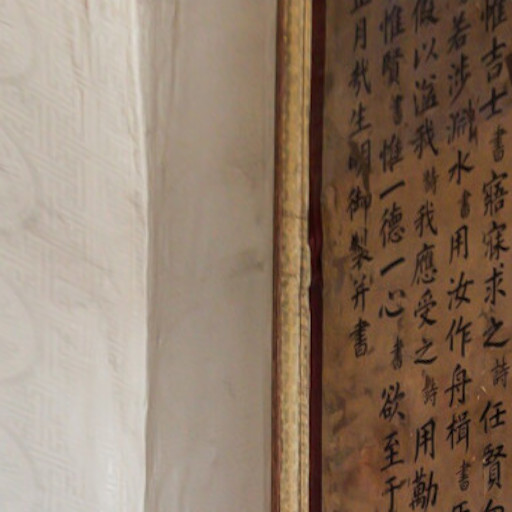 惟吉士書寤寐求之詩任賢勿
若涉淵水書用汝作舟楫書
假以溢我詩我應受之詩用勱
惟賢書惟一德一心書欲至于
正月哉生明御製并書